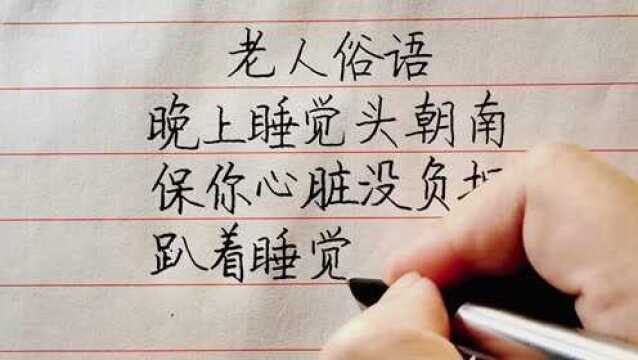 老人俗语
晚上睡觉头朝南
保你心脏没负
趴着睡觉